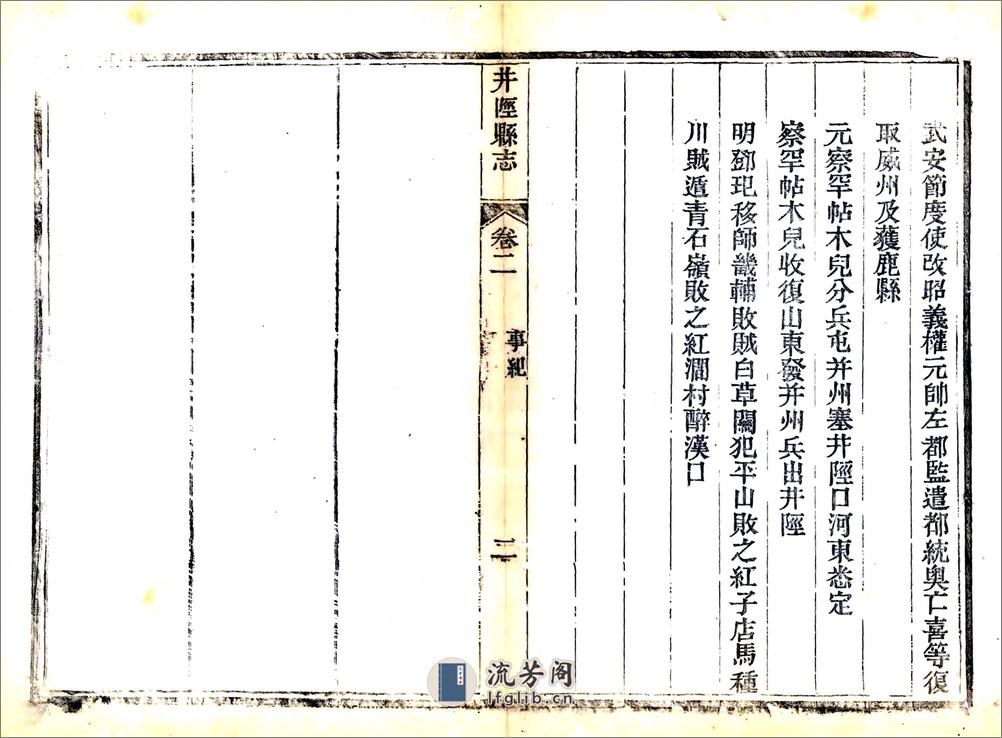 武安節度使改昭義權元帥左都監遣都統輿亡喜等復
取威州及獲鹿縣
元察罕帖木兒分兵屯并州塞井陘口河東悉定
察罕帖木兒收復山東發并州兵出井陘
明鄧玘移師畿輔敗賊白草關犯平山敗之紅子店馬種
川賊遁青石嶺敗之紅澗村醉漢口
井陘縣志
卷二
事紀
二
流芳阁
lfglib.cn